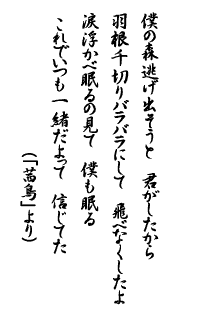 僕の森逃げ出そうと 君がしたから
羽根千切りバラバラにして 飛べなくしたよ
涙浮かべ眠るの見て 僕も眠る
これでいつも一緒だよって 信じてた
(「茜鳥」より)